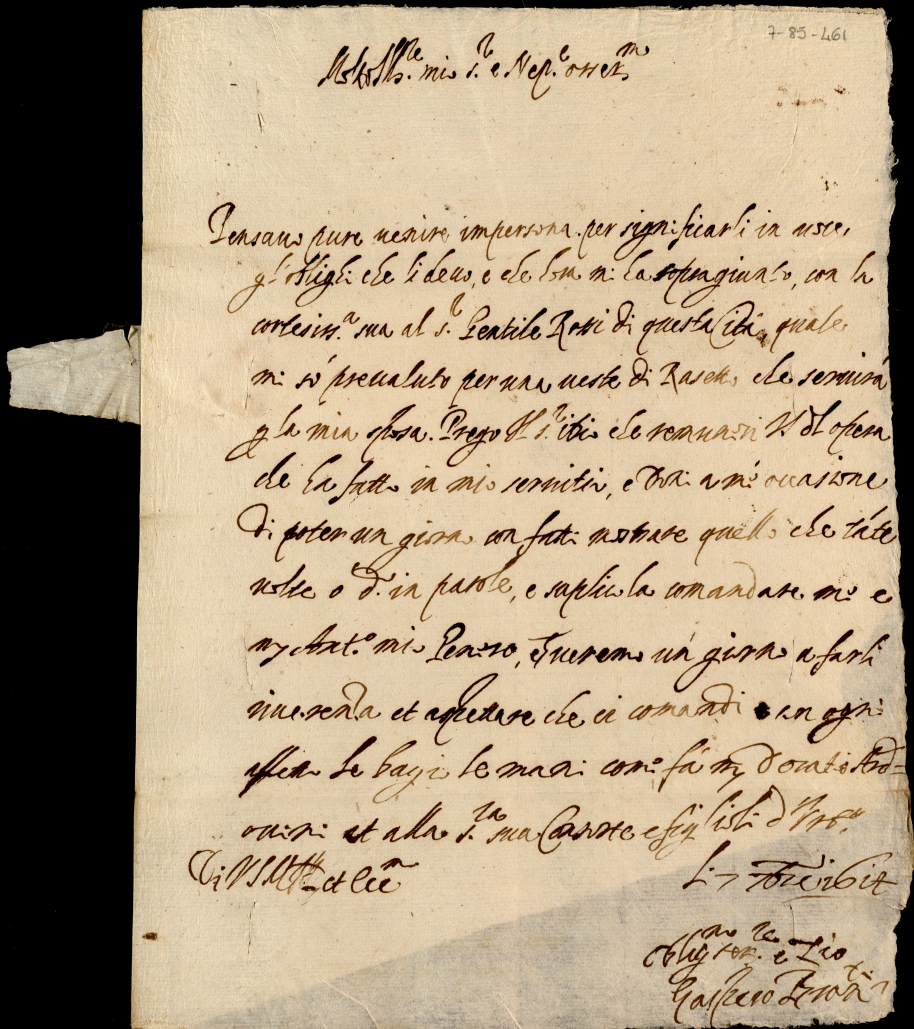 7-85-461
Molto Ill.re mio s.r e Nep.e osser.mo
Pensavo pure venire impersona per significarli in voce
gl'oblighi che li devo, e che hora mi ha sopragiunto, con la
cortesiss.a sua al s.r Gentile Rossi di questa Cità, quale
mi sò prevaluto per una veste di Rasetto che servirà
la mia sposa. Prego il s.r che remuneri V.S. del opera
che ha fatto in mio servitio, e doni a me occasione
di poter un giorno con fatti mostrare quello che tāte
volte ò d. in parole, e suplico la comandare me e
Ant.o mio Genero, un giorno a farli
riverenza et aspettare che ci comandi con ogni
affetto le bagi le mani come fà Donato Ard=
ovini et alla s.ra sua Consorte e figlioli d'
Di V S M et Ecc
Li 7 161
Oblig ser.re e Zio
Gasparo